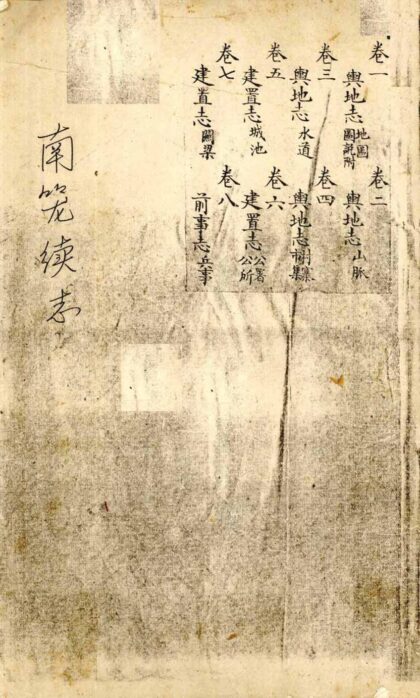 卷一　卷二
輿地志地圖圖說附　輿地志山脈
卷三　卷四
輿地志水道　輿地志
卷五　卷六
建置志城池　建置志公署公所
卷七　卷八
建置志關梁　前事志兵事
南笼续志